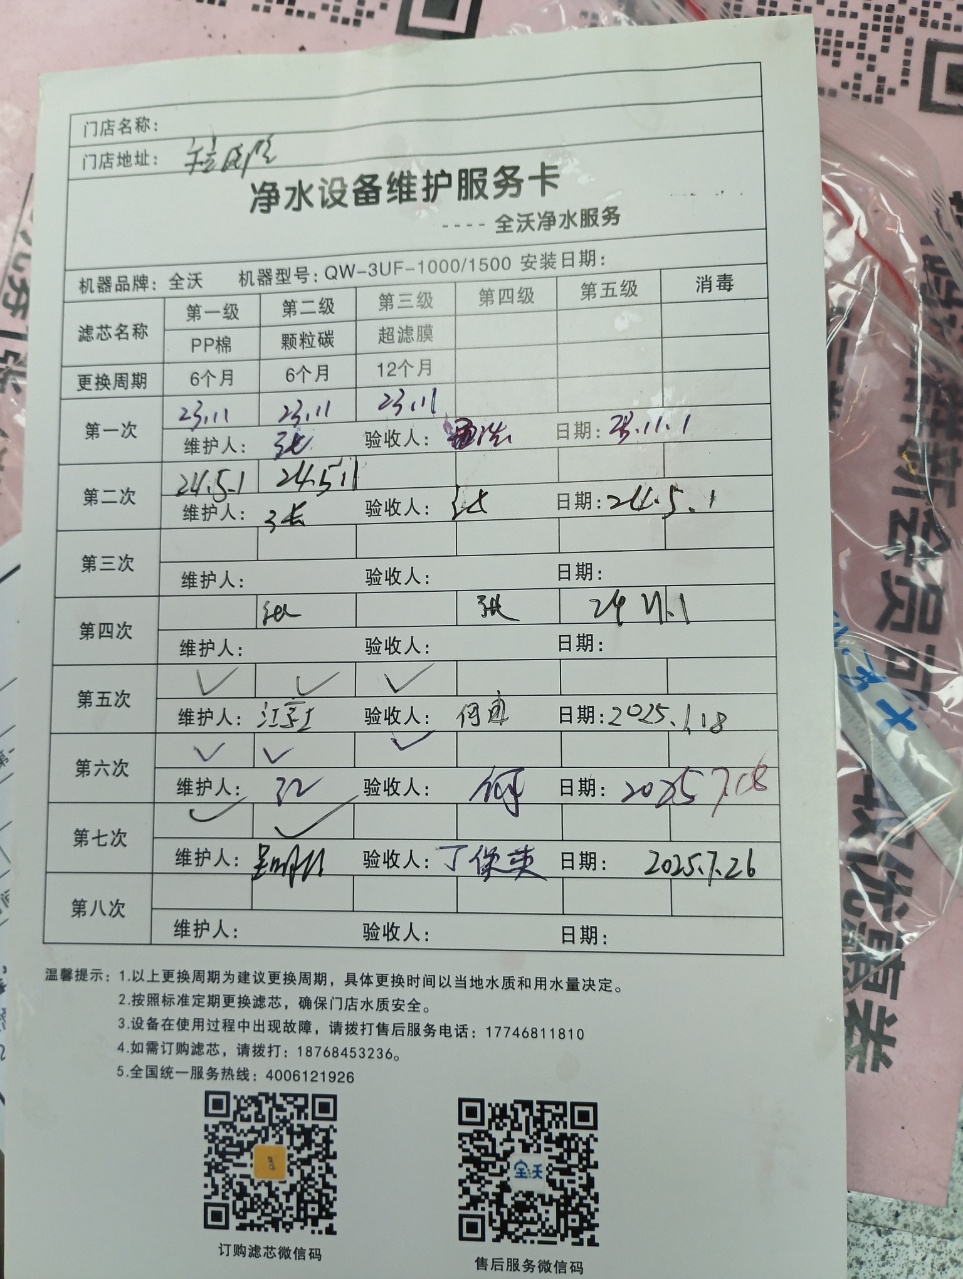 门店名称:
门店地址:
净水设备维护服务卡
----全沃净水服务
机器品牌: 全沃 机器型号: QW-3UF-1000/1500 安装日期:
滤芯名称 第一级 第二级 第三级 第四级 第五级 消毒
PP棉 颗粒碳 超滤膜
更换周期 6个月 6个月 12个月
第一次 23.11 23.11 23.11
维护人: 张 验收人: 日期: 23.11.1
第二次 24.5.1 24.5.1
维护人: 张 验收人: 张 日期: 24.5.1
第三次
维护人: 验收人: 日期:
第四次
维护人: 验收人: 日期:
第五次 ✓ ✓ ✓
维护人: 验收人: 日期: 2025.1.18
第六次 ✓ ✓ ✓
维护人: 验收人: 何 日期: 2025 7.18
第七次 ✓ ✓
维护人: 验收人: 丁保英 日期: 2025.7.26
第八次
维护人: 验收人: 日期:
温馨提示: 1.以上更换周期为建议更换周期，具体更换时间以当地水质和用水量决定。
2.按照标准定期更换滤芯，确保门店水质安全。
3.设备在使用过程中出现故障，请拨打售后服务电话: 17746811810
4.如需订购滤芯，请拨打: 18768453236。
5.全国统一服务热线: 4006121926
全沃
订购滤芯微信码
售后服务微信码